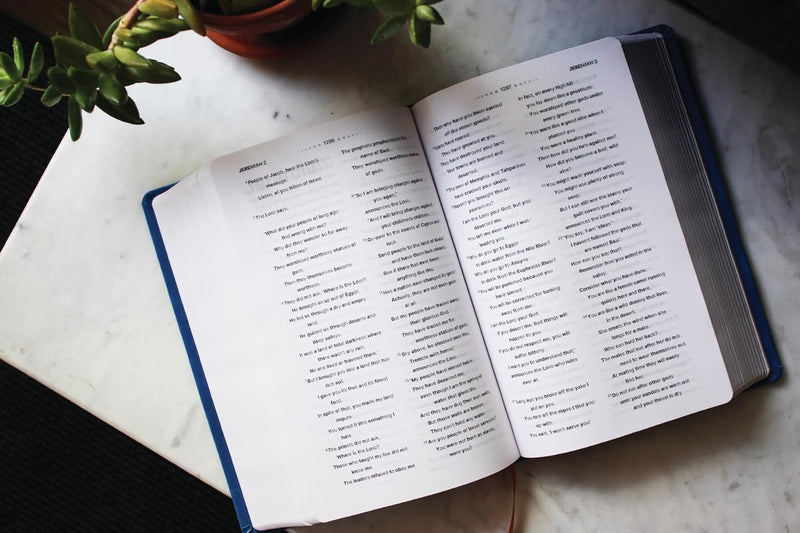 JEREMIAH 2
1296
⁴People of Jacob, hear the LORD's
message.
Listen, all you tribes of Israel.
⁵The LORD says,
"What did your people of long ago
find wrong with me?
Why did they wander so far away
from me?
They worshiped worthless statues of
gods.
Then they themselves became
worthless.
⁶They did not ask, 'Where is the LORD?
He brought us up out of Egypt.
He led us through a dry and empty
land.
He guided us through deserts and
deep valleys.
It was a land of total darkness where
there wasn't any rain.
No one lived or traveled there.'
⁷But I brought you into a land that has
rich soil.
I gave you its fruit and its finest
food.
In spite of that, you made my land
impure.
You turned it into something I
hate.
⁸The priests did not ask,
'Where is the LORD?'
Those who taught my law did not
know me.
The leaders refused to obey me.
The prophets prophesied in the
name of Baal.
They worshiped worthless statues
of gods.
⁹"So I am bringing charges against
you again,"
announces the LORD.
"And I will bring charges against
your children's children.
¹⁰Go over to the coasts of Cyprus and
look.
Send people to the land of Kedar
and have them look closely.
See if there has ever been
anything like this.
¹¹Has a nation ever changed its gods?
Actually, they are not even gods
at all.
But my people have traded away
their glorious God.
They have traded me for
worthless statues of gods.
¹²Sky above, be shocked over this.
Tremble with horror,"
announces the LORD.
¹³"My people have sinned twice.
They have deserted me,
even though I am the spring of
water that gives life.
And they have dug their own wells.
But those wells are broken.
They can't hold any water.
¹⁴Are you people of Israel servants?
You were not born as slaves,
were you?
1297
JEREMIAH 2
Then why have you been carried
off like stolen goods?
¹⁵Lions have roared.
They have growled at you.
They have destroyed your land.
Your towns are burned and
deserted.
¹⁶The men of Memphis and Tahpanhes
have cracked your skulls.
¹⁷Haven't you brought this on
yourselves?
I am the LORD your God, but you
deserted me.
You left me even while I was
leading you.
¹⁸Why do you go to Egypt
to drink water from the Nile River?
Why do you go to Assyria
to drink from the Euphrates River?
¹⁹You will be punished because you
have sinned.
You will be corrected for turning
away from me.
I am the LORD your God.
If you desert me, bad things will
happen to you.
If you do not respect me, you will
suffer bitterly.
I want you to understand that,"
announces the LORD who rules
over all.
²⁰"Long ago you broke off the yoke I
put on you.
You tore off the ropes I tied you
up with.
You said, 'I won't serve you!'
In fact, on every high hill
you lay down like a prostitute.
You worshiped other gods under
every green tree.
²¹You were like a good vine when I
planted you.
You were a healthy plant.
Then how did you turn against me?
How did you become a bad, wild
vine?
²²You might wash yourself with soap.
You might use plenty of strong
soap.
But I can still see the stains your
guilt covers you with,"
announces the LORD and King.
²³"You say, 'I am "clean."
I haven't followed the gods that
are named Baal.'
How can you say that?
Remember how you acted in the
valley.
Consider what you have done.
You are like a female camel running
quickly here and there.
²⁴You are like a wild donkey that lives
in the desert.
She smells the wind when she
longs for a mate.
Who can hold her back?
The males that run after her do not
need to wear themselves out.
At mating time they will easily
find her.
²⁵Do not run after other gods
until your sandals are worn out
and your throat is dry.